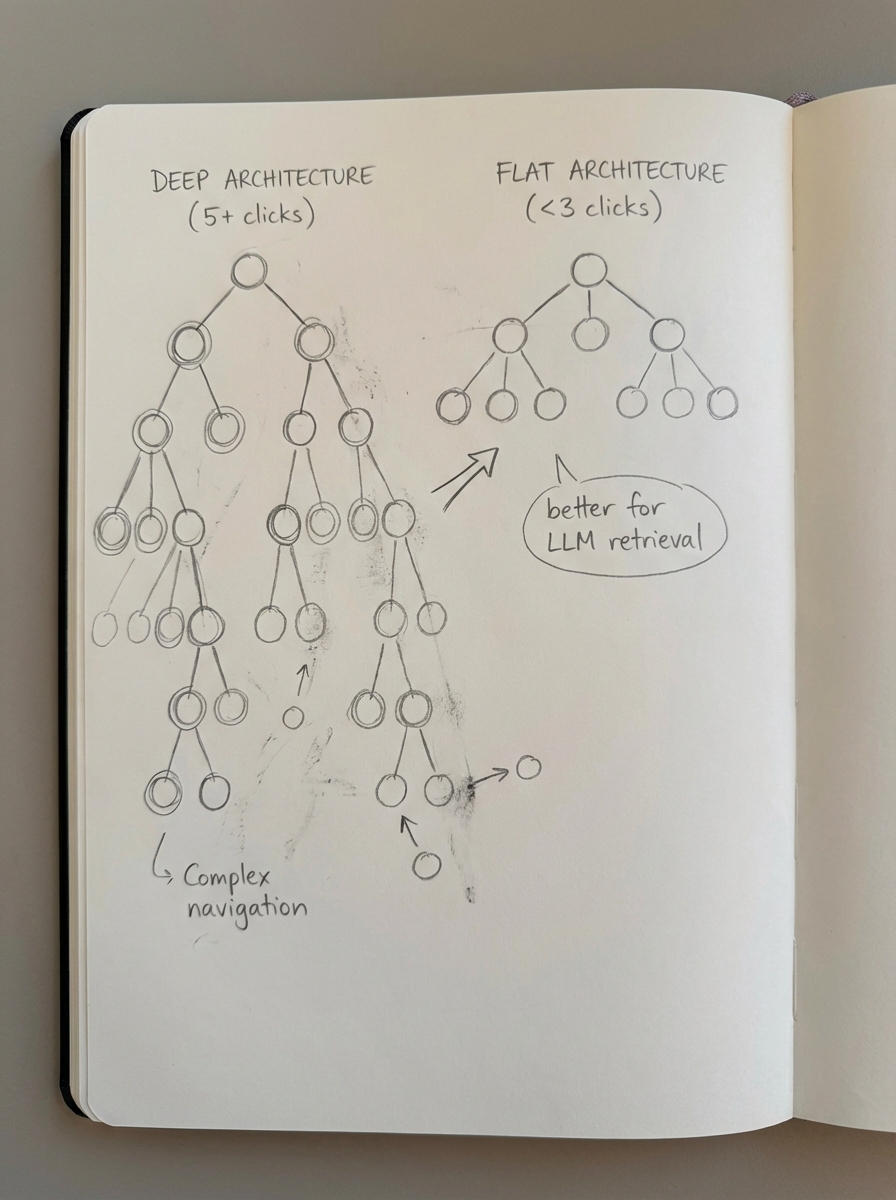 DEEP ARCHITECTURE
(5+ clicks)
FLAT ARCHITECTURE
(<3 clicks)
better for
LLM retrieval
Complex
navigation